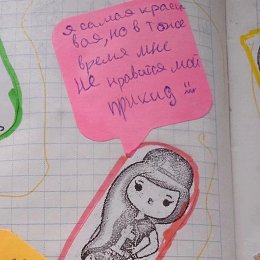 я самая краси
вая, но в тоже
время мне
не нравится мой
прикид